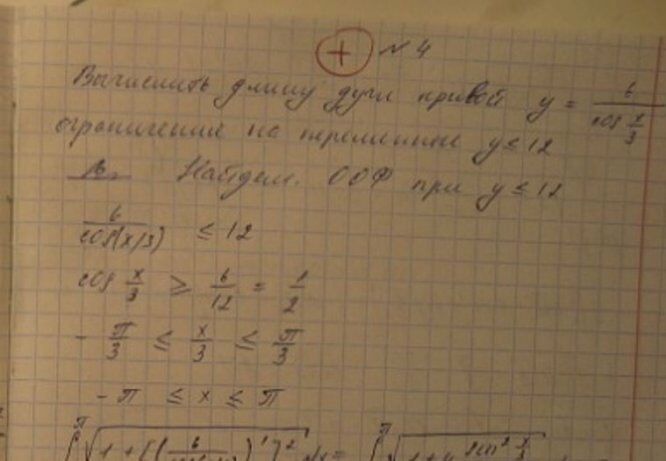 + №4
Вычислить длину дуги кривой y = 6 / cos x/3
ограничение на переменные y ≤ 12
Найдем. ООФ при y ≤ 12
6 / cos(x/3) ≤ 12
cos x/3 ≥ 6/12 = 1/2
- π/3 ≤ x/3 ≤ π/3
- π ≤ x ≤ π